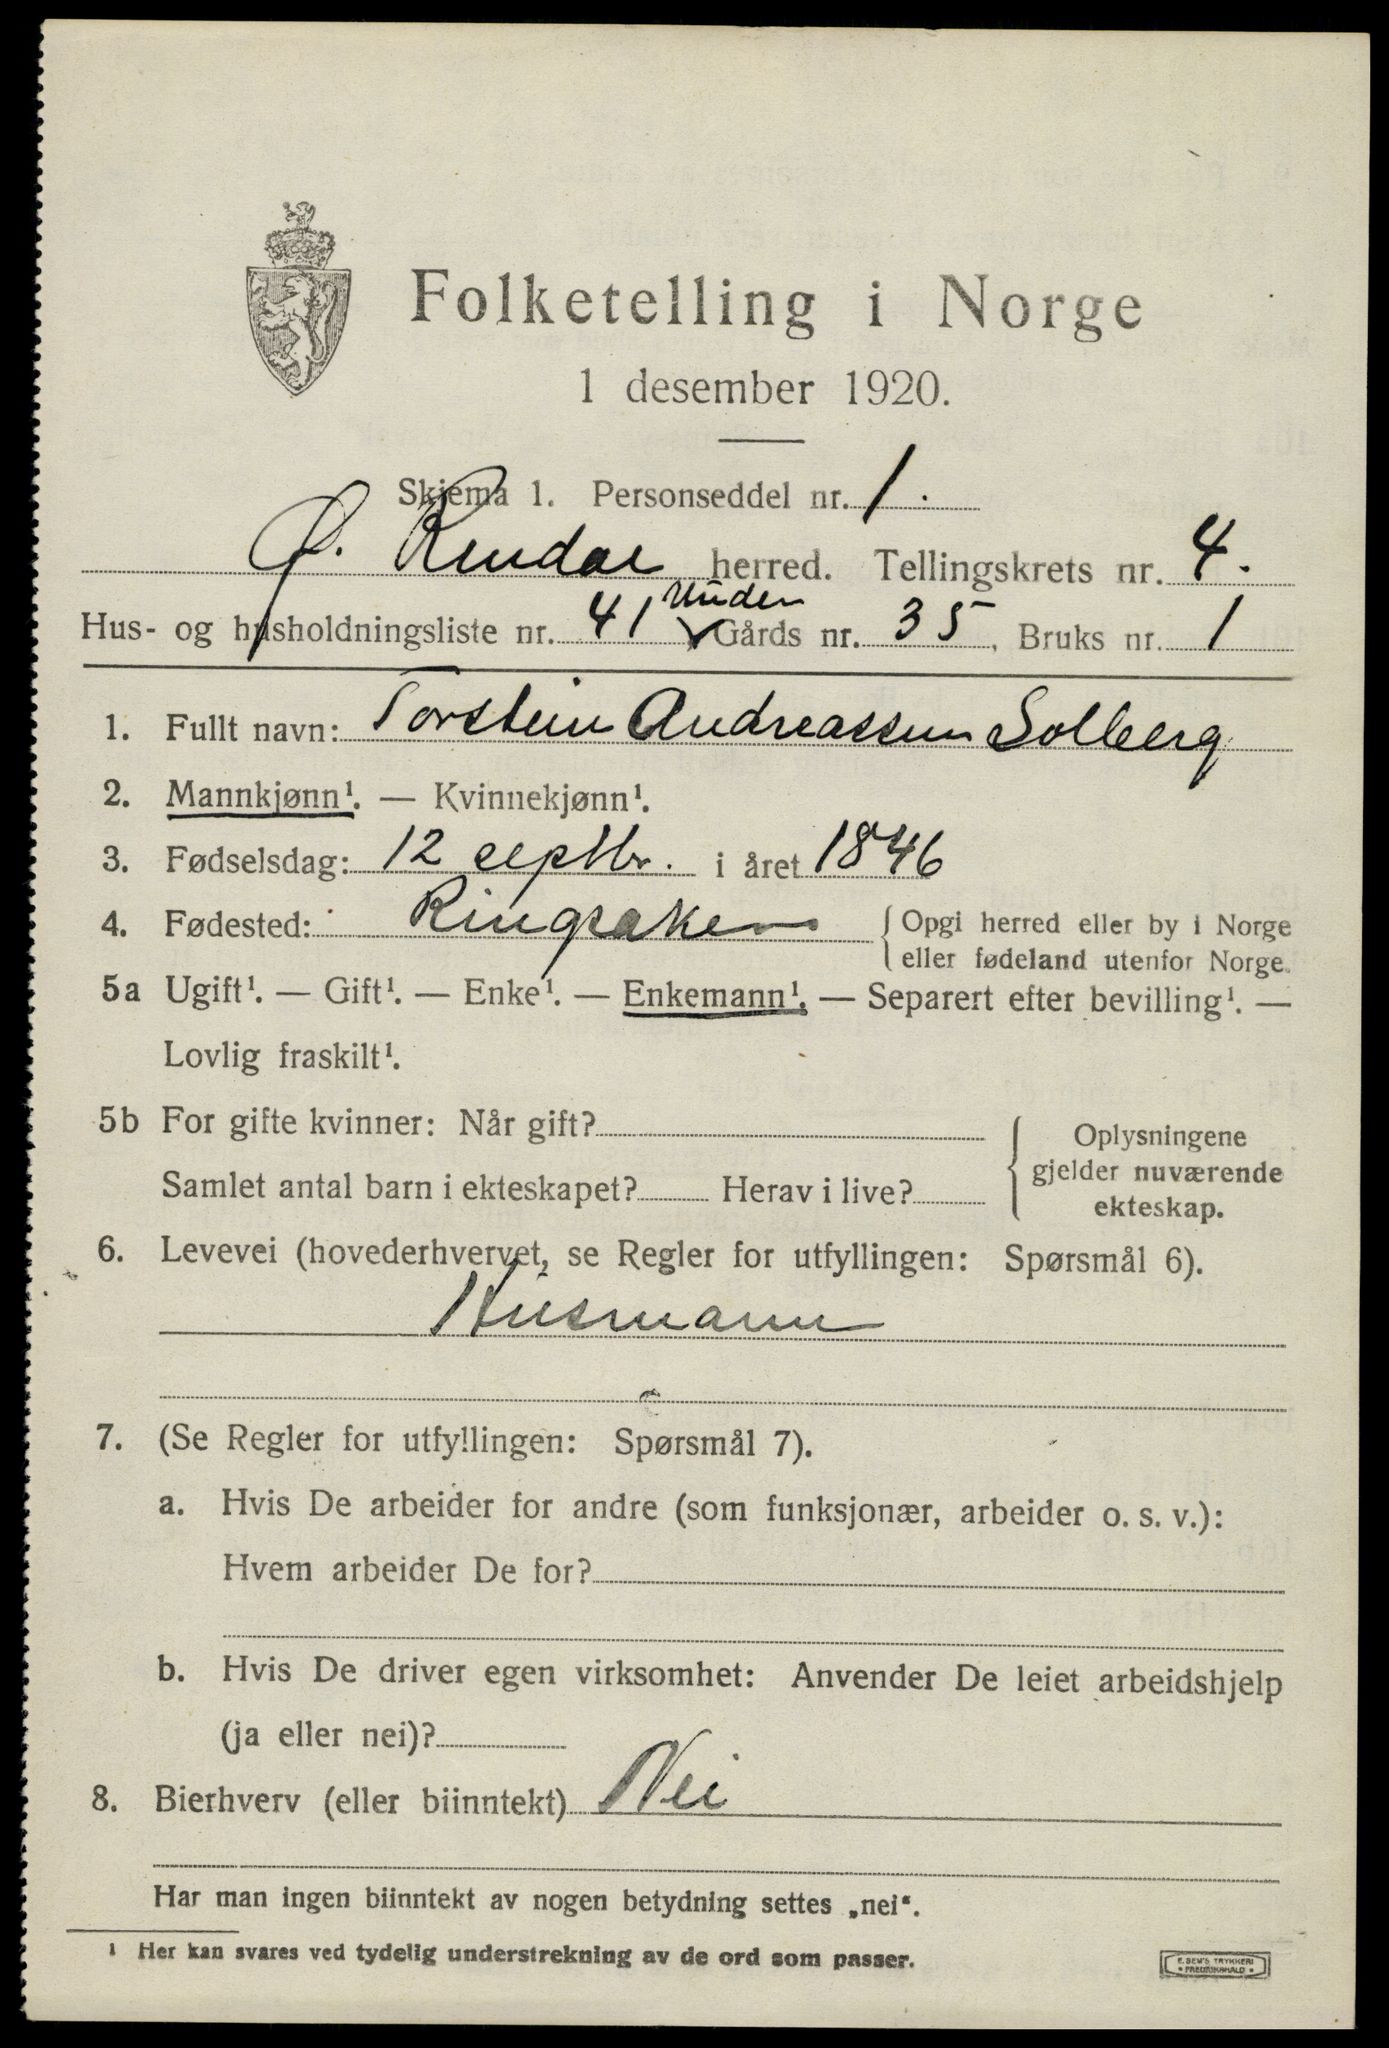 Folketelling i Norge
1 desember 1920.
Skjema 1. Personseddel nr. 1.
Ø. Rendal herred. Tellingskrets nr. 4.
Under
Hus- og husholdningsliste nr. 41 Gårds nr. 35, Bruks nr. 1
1. Fullt navn: Torstein Andreassen Solberg
2. Mannkjønn¹. — Kvinnekjønn¹.
3. Fødselsdag: 12 septbr. i året 1846
4. Fødested: Ringsaker { Opgi herred eller by i Norge
eller fødeland utenfor Norge.
5a Ugift¹. — Gift¹. — Enke¹. — Enkemann¹. — Separert efter bevilling¹. —
Lovlig fraskilt¹.
5b For gifte kvinner: Når gift?
Samlet antal barn i ekteskapet? Herav i live?
Oplysningene
gjelder nuværende
ekteskap.
6. Levevei (hovederhvervet, se Regler for utfyllingen: Spørsmål 6).
Husmann
7. (Se Regler for utfyllingen: Spørsmål 7).
a. Hvis De arbeider for andre (som funksjonær, arbeider o. s. v.):
Hvem arbeider De for?
b. Hvis De driver egen virksomhet: Anvender De leiet arbeidshjelp
(ja eller nei)?
8. Bierhverv (eller biinntekt) Nei
Har man ingen biinntekt av nogen betydning settes „nei“.
¹ Her kan svares ved tydelig understrekning av de ord som passer.
E. SEM'S TRYKKERI
• FREDRIKSHALD •